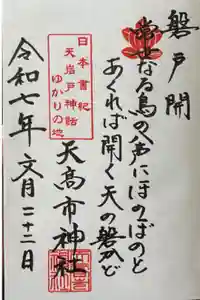 磐戸開
常世なる鳥の声にほのぼのと
あくれば開く天の磐かど
日本書紀
天岩戸神話
ゆかりの地
天高市神社
令和七年 文月二十二日